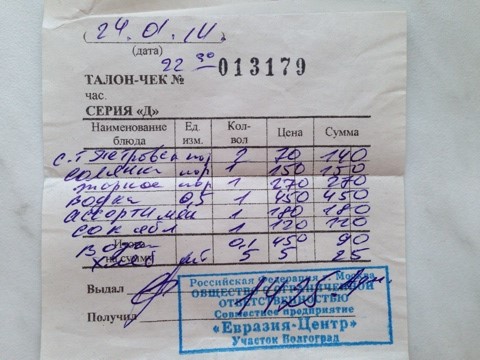 24.01.14
(дата)
22 30 013179
ТАЛОН-ЧЕК №
час.
СЕРИЯ «Д»
Наименование блюда Ед. изм. Кол-вол Цена Сумма
пор 2 70 140
Солянка пор 1 150 150
Жаркое пор 1 270 270
Водка 0,5 1 450 450
Ассорти 1 180 180
Сок 1 120 120
Водка 0,1 450 90
Хлеб 5 5 25
Итого
на сумму
Выдал
Получил
Российская Федерация Москва
ОБЩЕСТВО С ОГРАНИЧЕННОЙ
ОТВЕТСТВЕННОСТЬЮ
Совместное предприятие
«Евразия-Центр»
Участок Волгоград